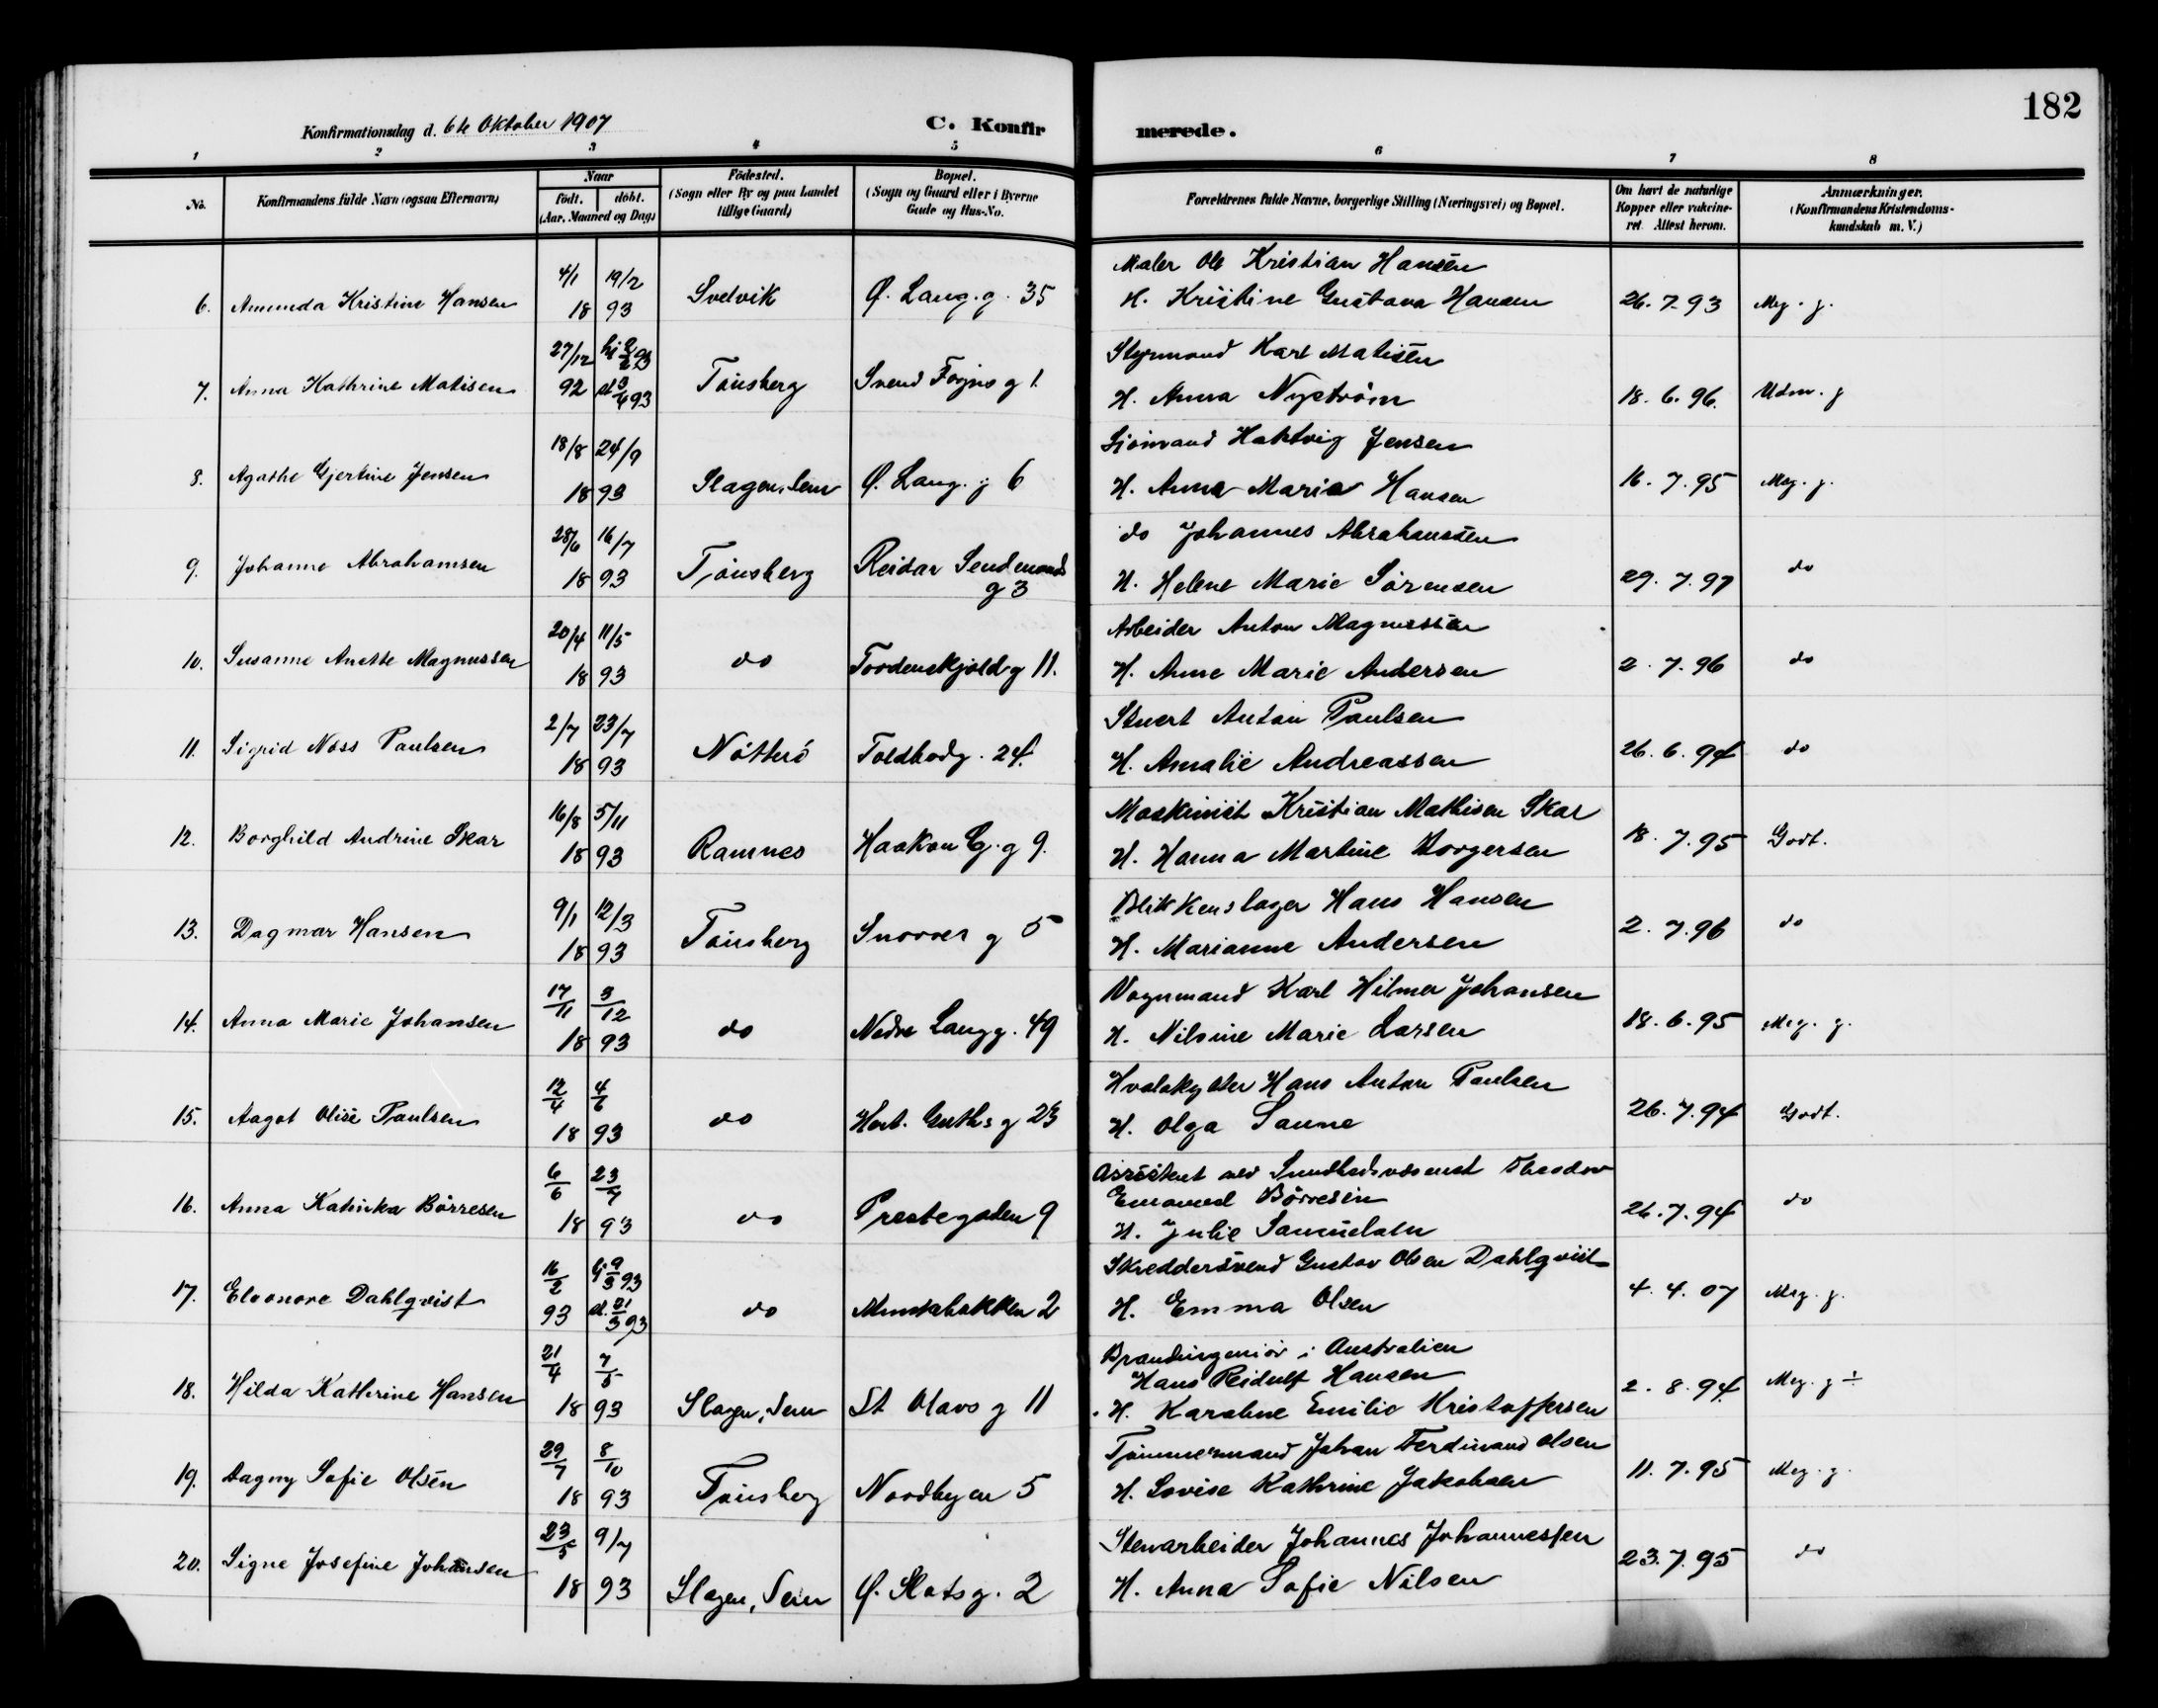 182
Konfirmationsdag d. 6te Oktober 1907 C. Konfirmerede.
1 2 3 4 5 6 7 8
No. Konfirmandens fulde Navn (ogsaa Efternavn) Naar født. døbt. (Aar, Maaned og Dag) Fødested. (Sogn eller By og paa Landet tillige Gaard) Bopæl. (Sogn og Gaard eller i Byerne Gade og Hus-No. Forældrenes fulde Navne, borgerlige Stilling (Næringsvei) og Bopæl. Om havt de naturlige Kopper eller vakcineret. Attest herom. Anmærkninger. (Konfirmandens Kristendomskundskab m. V.)
4/1 19/2 Maler Ole Kristian Hansen
6. Amunda Kristine Hansen 18 93 Svelvik Ø. Lang.g. 35 H. Kristine Gustava Hansen 26.7.93 Meg. g.
27/12 hj 2/2 93 Styrmand Karl Matisen
7. Anna Kathrine Matisen 92 st 3/4 93 Tønsberg Svend Foyns g 1. H. Anna Nyström 18.6.96. Udm. g
18/8 24/9 Sjömand Hartvig Jensen
8. Agathe Gjertine Jensen 18 93 Slagen, Sem Ø. Lang. g 6 H. Anna Maria Hansen 16.7.95 Meg. g.
28/6 16/7 do Johannes Abrahamsen
9. Johanne Abrahamsen 18 93 Tønsberg Reidar Sendemands g 3 H. Helene Marie Sørensen 29.7.97 do
20/4 11/5 Arbeider Anton Magnussen
10. Susanne Anette Magnussen 18 93 do Tordenskjold g 11. H. Anne Marie Andersen 2.7.96 do
2/7 23/7 Stuert Anton Paulsen
11. Sigrid Næss Paulsen 18 93 Nøtterø Toldbodg. 24. H. Amalie Andreassen 26.6.94 do
16/8 5/11 Maskinist Kristian Mathisen Skar
12. Borghild Andrine Skar 18 93 Ramnes Haakon G. g 9. H. Hanna Martine Borgersen 18.7.95 Godt.
9/1 12/3 Blikkenslager Hans Hansen
13. Dagmar Hansen 18 93 Tønsberg Snorres g 5 H. Marianne Andersen 2.7.96 do
17/11 3/12 Vognmand Karl Hilmer Johansen
14. Anna Marie Johansen 18 93 do Nedre Langg. 49 H. Nilsine Marie Larsen 18.6.95 Meg. g.
12/4 4/6 Hvalskytter Hans Anton Paulsen
15. Aagot Olise Paulsen 18 93 do g 23 H. Olga Sanne 26.7.94 Godt.
6/6 23/7 Assistent ved Sundhedsvæsenet Theodor
Emanuel Børresen
16. Anna Katinka Børresen 18 93 do Prestegaden 9 H. Julie Samuelsen 26.7.94 do
16/2 hj 9/3 93 Skreddersvend Gustav Olsen Dahlqvist
17. Eleonore Dahlqvist 93 st. 21/3 93 do Munkebakken 2 H. Emma Olsen 4.4.07 Meg. g.
21/4 7/5 Brandingeniør i Australien
Hans Reidulf Hansen
18. Hilda Kathrine Hansen 18 93 Slagen, Sem St Olavs g 11 H. Karoline Emilie Kristoffersen 2.8.94. Meg. g ÷
29/7 8/10 Tømmermand Johan Ferdinand Olsen
19. Dagny Sofie Olsen 18 93 Tønsberg Nordbyen 5 H. Lovise Kathrine Jakobsen 11.7.95 Meg. g.
23/5 9/7 Stenarbeider Johannes Johannessen
20. Signe Josefine Johansen 18 93 Slagen, Sem Ø. Slotsg. 2 H. Anna Sofie Nilsen 23.7.95 do